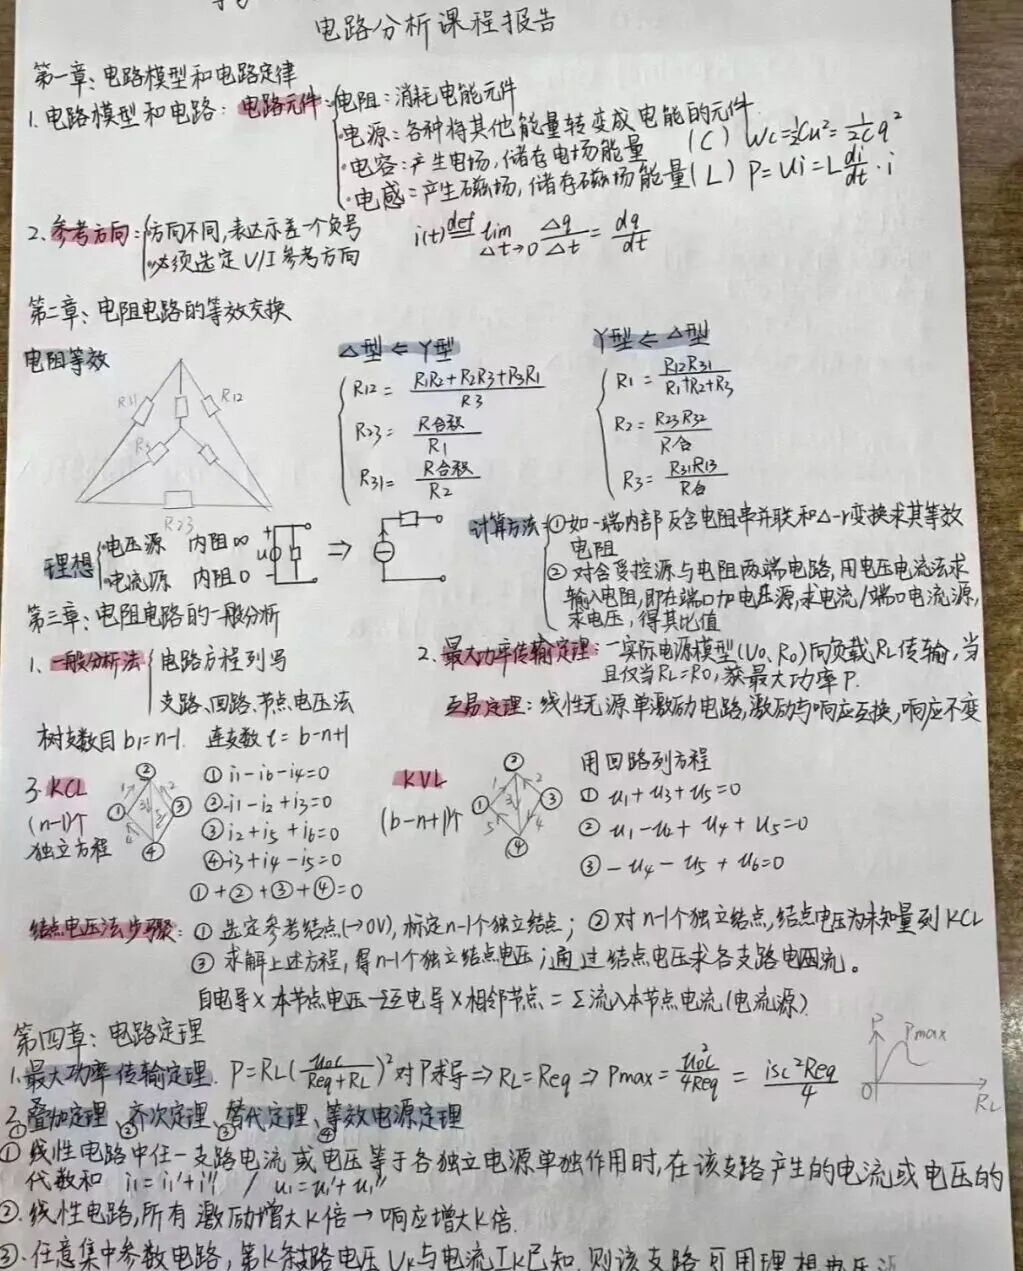 电路分析课程报告
第一章：电路模型和电路定律
1.电路模型和电路：电路元件：电阻：消耗电能元件
电源：各种将其他能量转变成电能的元件
电容：产生电场，储存电场能量 (C) Wc=½Cu²=1/2C q²
电感：产生磁场，储存磁场能量(L) P=Ui=L di/dt·i
2.参考方向：方向不同，表达示差一个负号 i(t) def lim Δt→0 Δq/Δt = dq/dt
必须选定U/I参考方向
第二章：电阻电路的等效变换
电阻等效 △型⇐Y型 Y型⇐△型
R31 R12 R3 R23
R12=(R1R2+R2R3+R3R1)/R3 R1=R12R31/(R1+R2+R3)
R23=R合积/R1 R2=R23R32/R合
R31=R合积/R2 R3=R31R13/R合
理想 电压源 内阻∞ u + - ⇒
电流源 内阻0
计算方法 ①如一端内部反含电阻串并联和△-Y变换求其等效
电阻
②对含受控源与电阻两端电路，用电压电流法求
输入电阻，即在端口加电压源，求电流/端口电流源，
求电压，得其比值
第三章：电阻电路的一般分析
1、一般分析法 电路方程列写
支路、回路、节点电压法
2.最大功率传输定理：一实际电源模型(U0、R0)向负载RL传输，当
且仅当RL=R0，获最大功率P.
互易定理：线性无源单激励电路，激励与响应互换，响应不变
树支数目b1=n-1. 连支数l=b-n+1
3.KCL
(n-1)个
独立方程
①i1-i6-i4=0
②-i1-i2+i3=0
③i2+i5+i6=0
④-i3+i4-i5=0
①+②+③+④=0
KVL
(b-n+1)个
用回路列方程
① u1+u3+u5=0
② u1-u2+u4+u5=0
③ -u4-u5+u6=0
结点电压法步骤：①选定参考结点(→0V)，标定n-1个独立结点；②对n-1个独立结点，结点电压为未知量列KCL
③求解上述方程，得n-1个独立结点电压；通过结点电压求各支路电流。
自电导×本节点电压-Σ互电导×相邻节点=Σ流入本节点电流(电流源)
第四章：电路定理
1.最大功率传输定理. P=RL(uoc/(Req+RL))² 对P求导⇒RL=Req⇒Pmax=uoc²/4Req=isc²Req/4
P Pmax 0 RL
2.①叠加定理、②齐次定理、③替代定理、④等效电源定理
①线性电路中任一支路电流或电压等于各独立电源单独作用时，在该支路产生的电流或电压的
代数和 i1=i1'+i1'' / u1=u1'+u1''
②.线性电路，所有激励增大K倍→响应增大K倍.
③.任意集中参数电路，第K条支路电压Uk与电流Ik已知，则该支路可用理想电压源